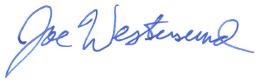 Joe Westersund